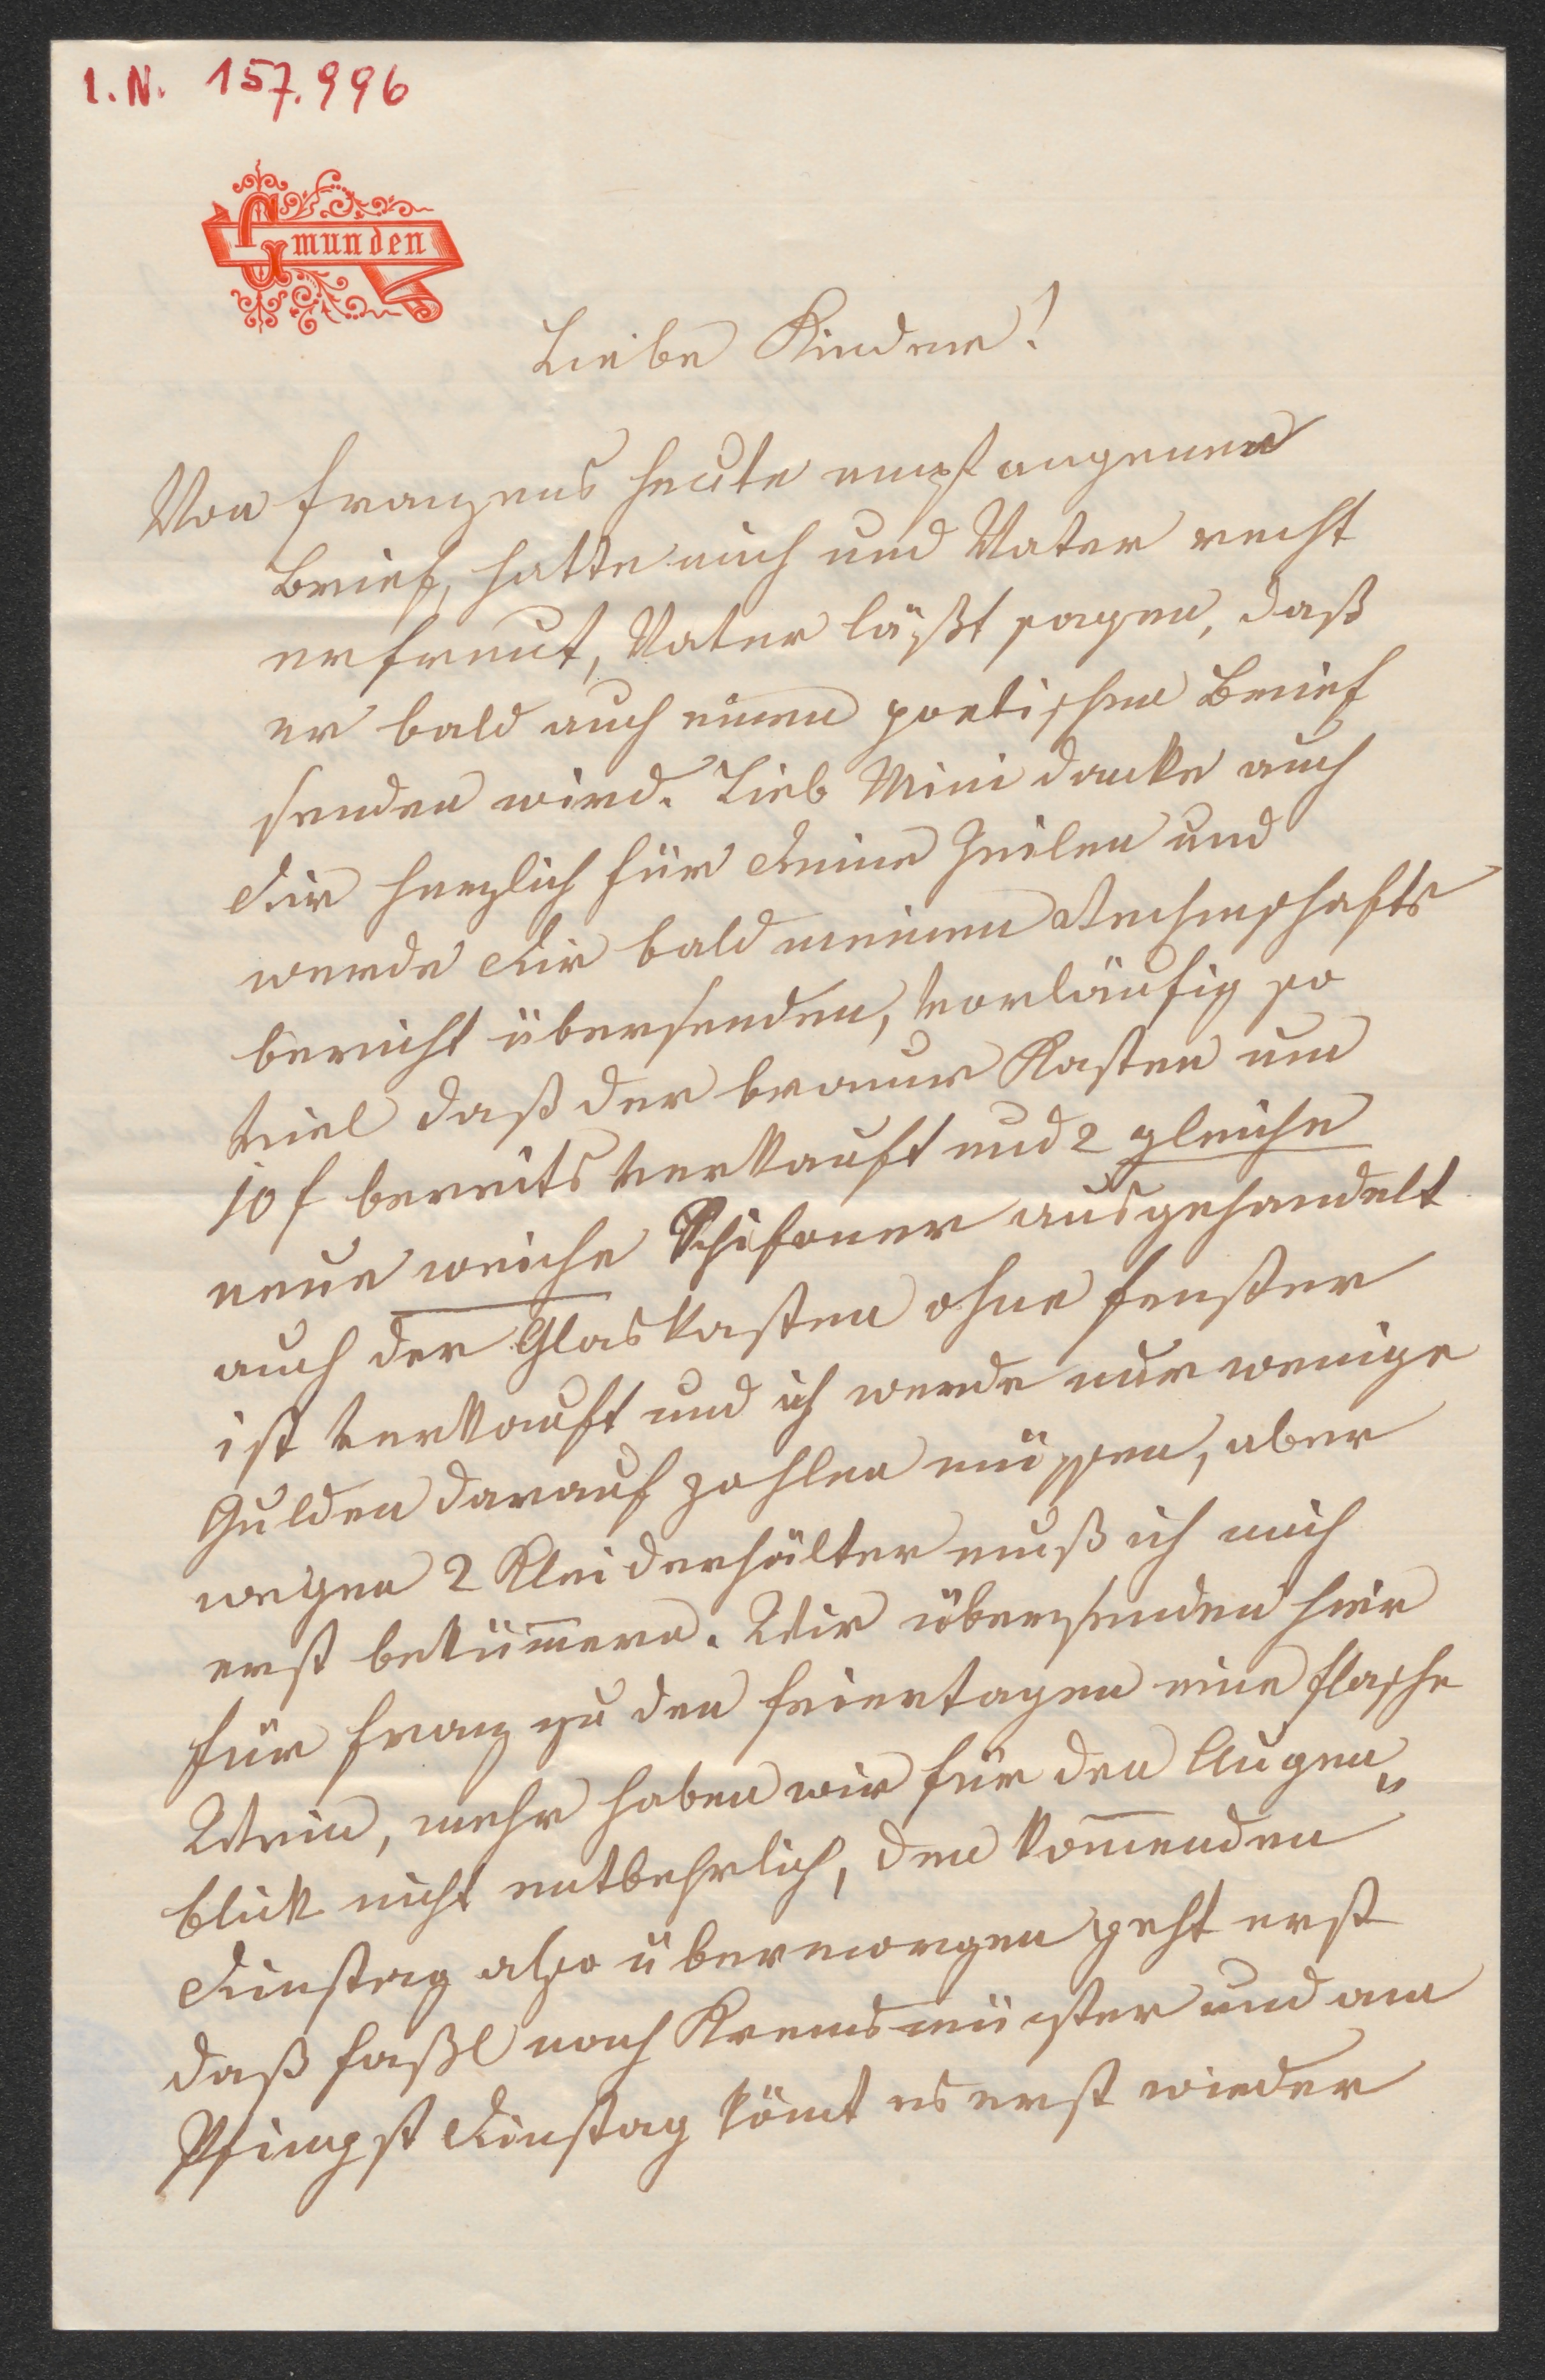 I.N. 157.996
Gmunden
Liebe Kinder!
Von Franzens heute empfangenen
Brief, hatte mich und Vater recht
erfreut, Vater läßt sagen, daß
er bald auch einen poetischen Brief
senden wird. Lieb Mini danke auch
Dir herzlich für Deine Zeilen und
werde Dir bald meinen Rechenschafts
bericht übersenden, vorläufig so
viel daß der braune Kasten um
10 f bereits verkauft und 2 gleiche
neue weiche Schifoner ausgehandelt
auch der Glaskasten ohne Fenster
ist verkauft und ich werde nur wenige
Gulden darauf zahlen müssen, aber
wegen 2 Kleiderhälter muß ich mich
erst bekümern. Wir übersenden hier
für Franz zu den Feiertagen eine Flasche
Wein, mehr haben wir für den Augen„
blick nicht entbehrlich, den komenden
Dinstag also übermorgen geht erst
daß Faßl nach Kremsmünster und am
Pfingst Dinstag kömt es erst wieder